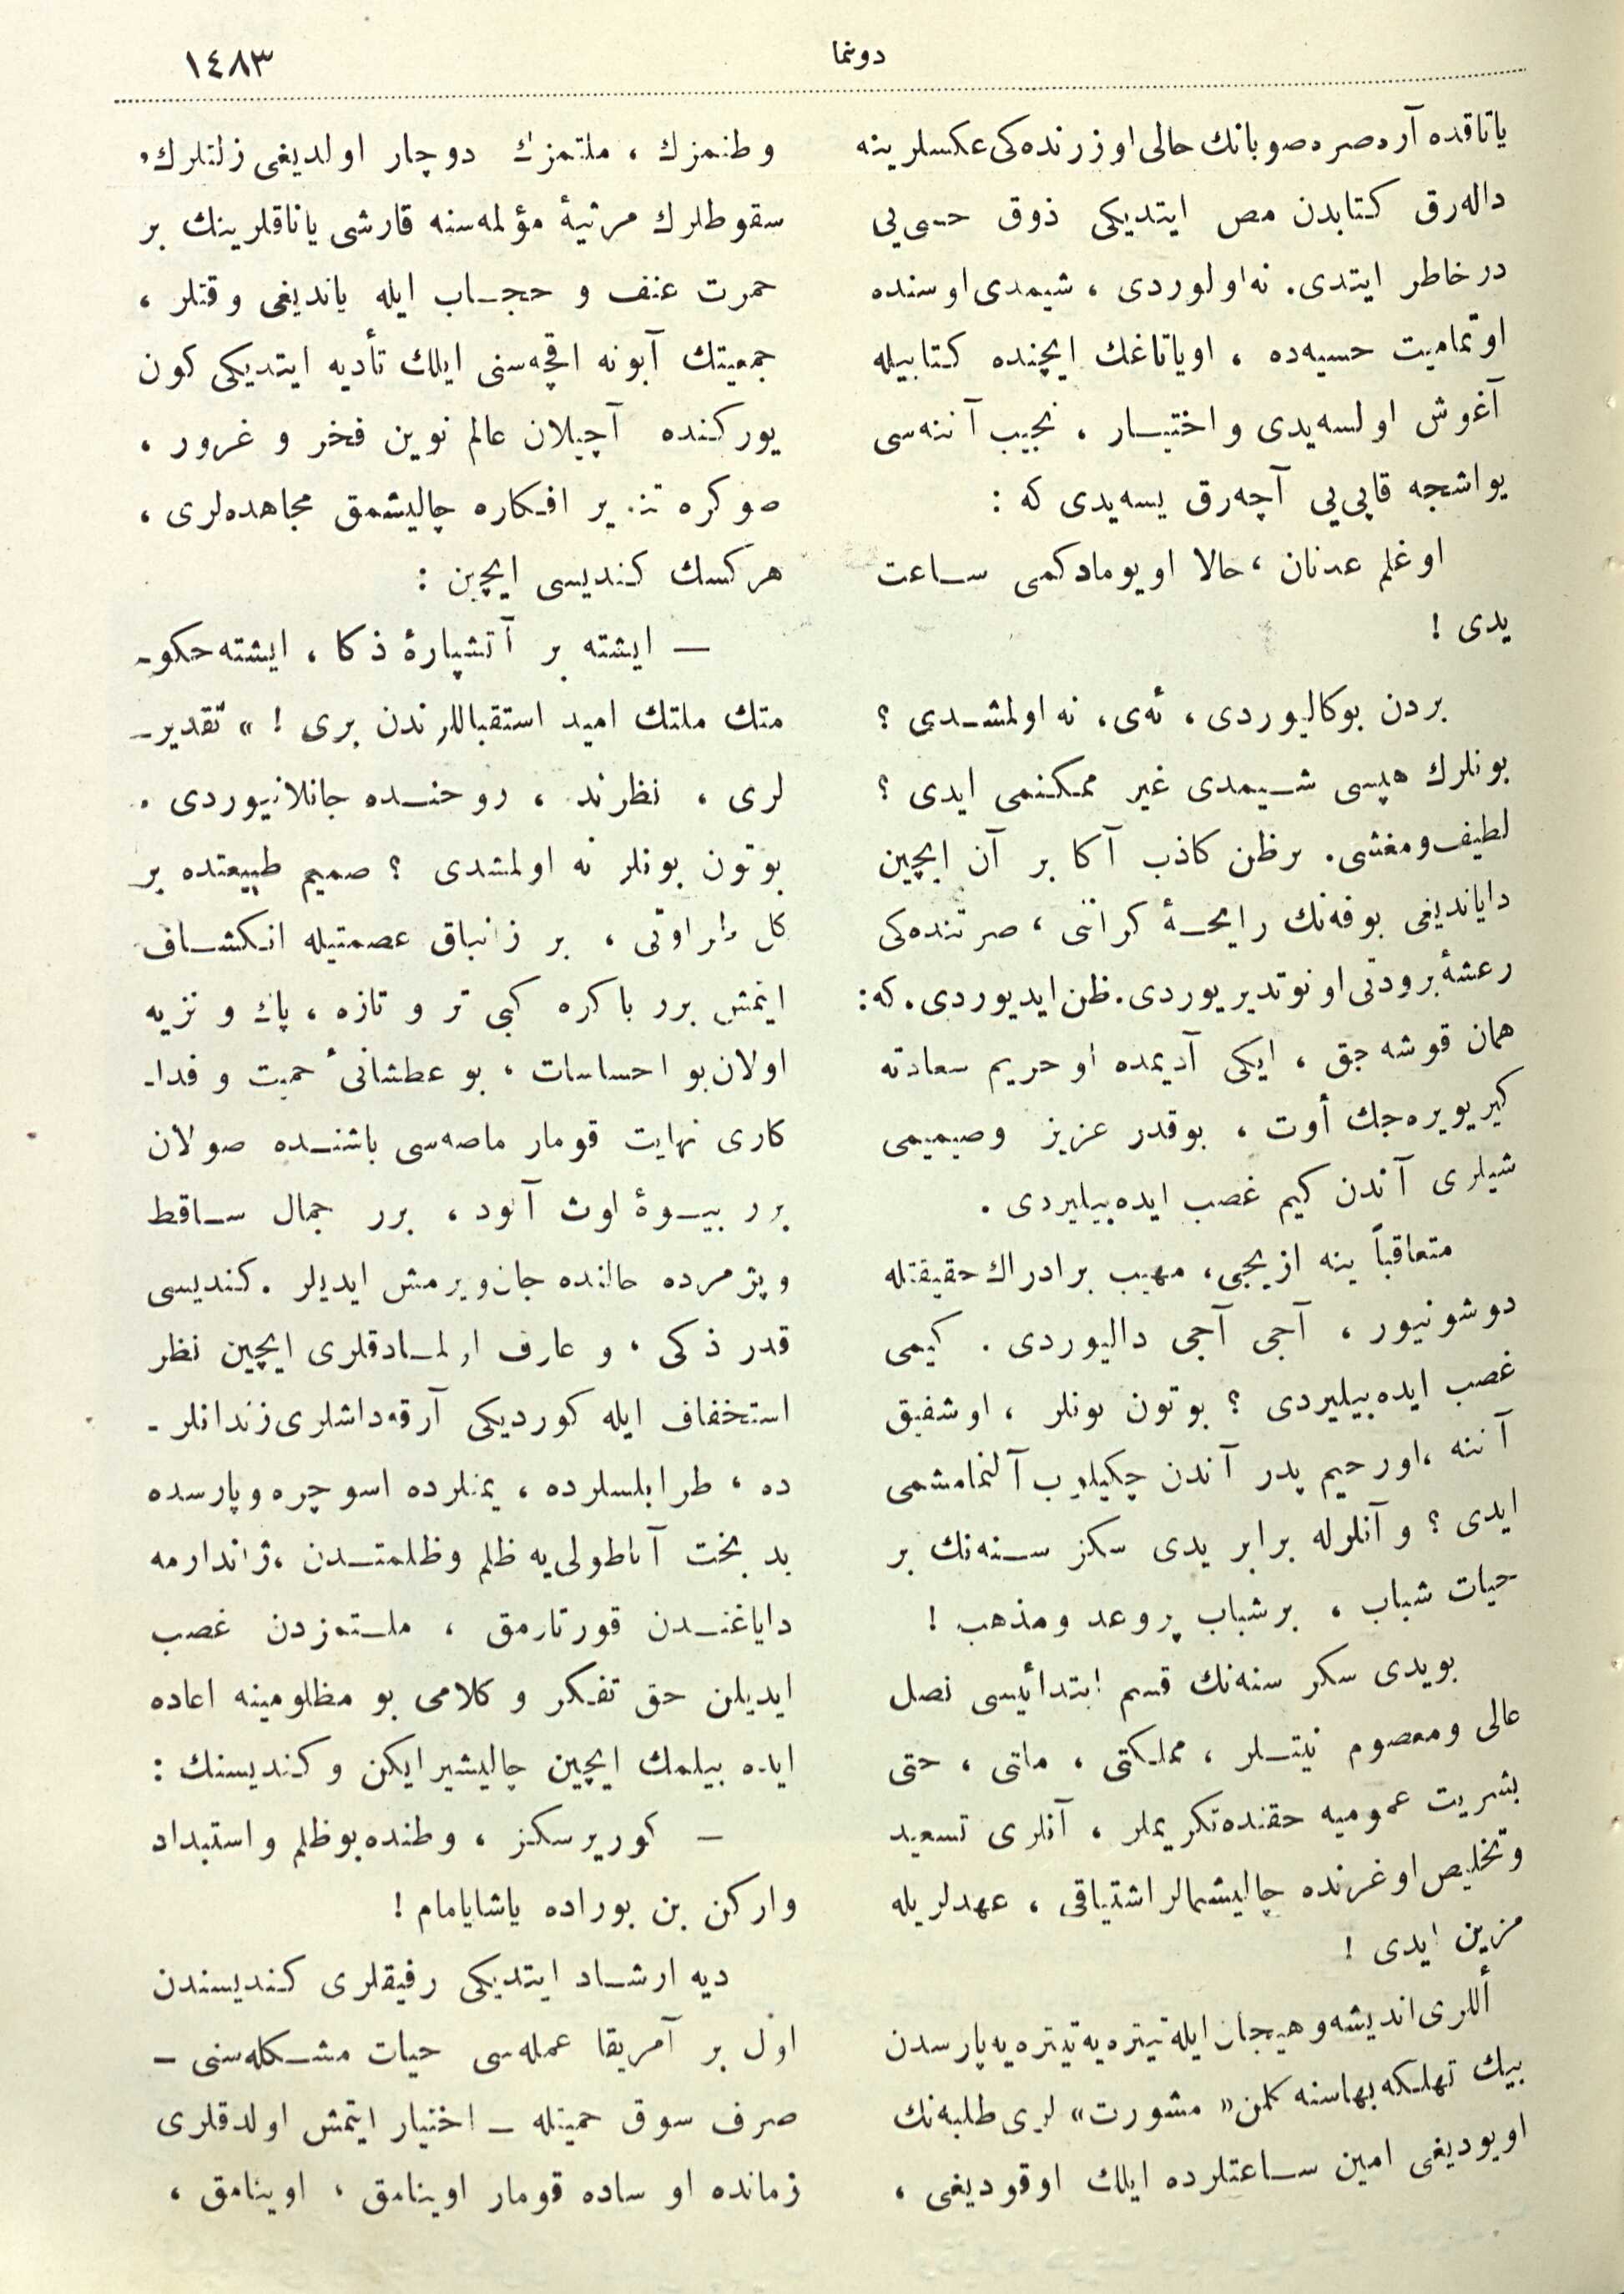 دونما
١٤٨٣
ياتاقده آره صره صوبانك حالى اوزرنده كى عكسلرينه
داله رق كتابدن مص ايتديكى ذوق حسى يى
درخاطر ايتدى. نه اولوردى ، شيمدى اوسنده
اوتماميت حسيه ده ، اوياتاغك ايچنده كتابيله
آغوش اولسه يدى و اختيـار ، نجيب آننه سى
يواشجه قاپى يى آچه رق يسه يدى كه :
اوغلم عدنان ، حالا اويومادكمى سـاعت
يدى !
بردن بوكاليوردى ، ئه ى ، نه اولمشـدى ؟
بونلرك هپسى شـيمدى غير ممكنمى ايدى ؟
لطيف ومغشى. برظن كاذب آكا بر آن ايچين
داياندیغى بوفه نك رايحـۀ كراننى ، صرتنده كى
رعشۀ برودتى اونوتديريوردى. ظن ايديوردى. كه :
همان قوشه جق ، ايكى آديمده او حريم سعادته
كيريويره جك أوت ، بوقدر عزيز وصيميمى
شيلرى آندن كيم غصب ايده بيليردى .
متعاقباً ينه ازيجى ، مهيب برادراك حقيقتله
دوشونيور ، آجى آجى داليوردى . كيمى
غصب ايده بيليردى ؟ بوتون بونلر ، اوشفيق
آننه ، اورحيم پدر آندن چكيلوب آلنمامشمى
ايدى ؟ و آنلرله برابر يدى سكز سـنه نك بر
حيات شباب ، برشباب پروعد ومذهب !
بويدى سكز سنه نك قسم ابتدائيسى نصل
عالى ومعصوم نيتـلر ، مملكتى ، ملتى ، حتى
بشريت عموميه حقنده تكريملر ، آنلرى تسعيد
وتخليص اوغرنده چاليشمالر اشتياقى ، عهدلريله
مزين ايدى !
أللرى انديشه وهيجان ايله تيتره يه تيتره يه پارسدن
بيك تهلكه بهاسنه كلن « مشورت » لرى طلبه نك
اويوديغى امين سـاعتلرده ايلك اوقوديغى ،
وطنمزك ، ملتمزك دوچار اولديغى زلتلرك ،
سقوطلرك مرثيۀ مؤلمه سنه قارشى ياناقلرينك بر
حمرت عنف و حجـاب ايله يانديغى وقتلر ،
جمعيتك آبونه اقچه سنى ايلك تأديه ايتديكى كون
يوركنده آچيلان عالم نوين فخر و غرور ،
صوكره تنوير افكاره چاليشمق مجاهده لرى ،
هركسك كنديسى ايچين :
— ايشته بر آتشپارۀ ذكا ، ايشته حكو-
متك ملتك اميد استقباللرندن برى ! » تقدير-
لرى ، نظرنده ، روحنـده جانلانيوردى .
بوتون بونلر نه اولمشدى ؟ صميم طبيعتده بر
كل طراوتى ، بر زانباق عصمتيله انكشـاف
ايتمش برر باكره كبى تر و تازه ، پاك و نزيه
اولان بو احساسات ، بو عطشانئ حميت و فدا-
كارى نهايت قومار ماصه سى باشنـده صولان
برر بيـوۀ لوث آلود ، برر جمال سـاقط
وپژمرده حالنده جان ويرمش ايديلر . كنديسى
قدر ذكى ، و عارف اولمـادقلرى ايچين نظر
استخفاف ايله كورديكى آرقه داشلرى زندانلر-
ده ، طرابلسلرده ، يمنلرده اسوچره وپارسده
بد بخت آناطولى يه ظلم وظلمتـدن ، ژاندارمه
داياغنـدن قورتارمق ، ملـتمزدن غصب
ايديلن حق تفكر و كلامى بو مظلومينه اعاده
ايده بيلمك ايچين چاليشيرايكن وكنديسنك :
— كوريرسكز ، وطنده بوظلم واستبداد
واركن بن بوراده ياشايامام !
ديه ارشـاد ايتديكى رفيقلرى كنديسندن
اول بر آمريقا عمله سى حيات مشـكله سنى —
صرف سوق حميتله — اختيار ايتمش اولدقلرى
زمانده او ساده قومار اوينامق ، اوينامق ،